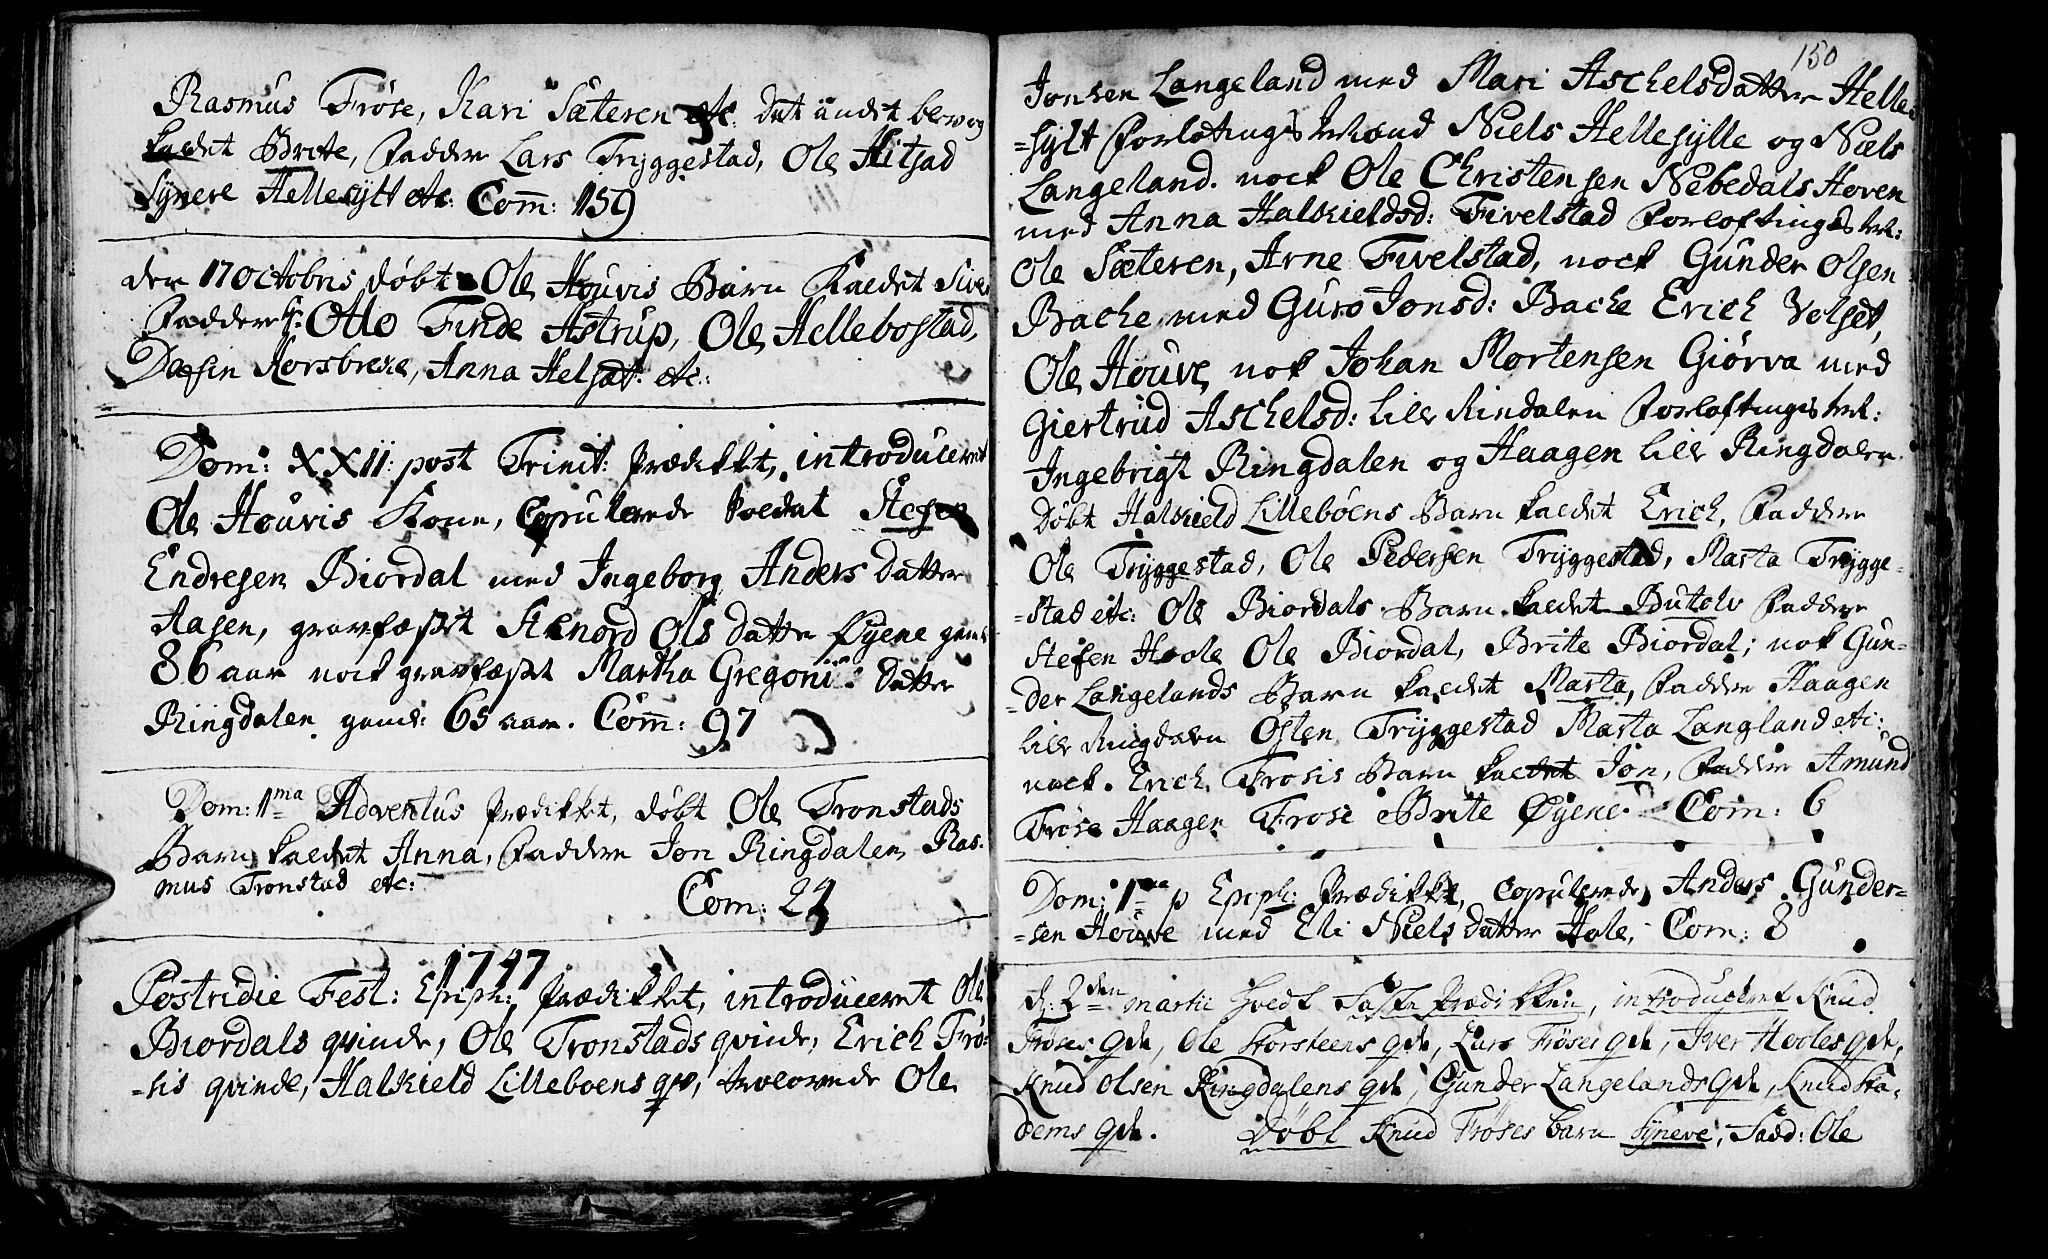 Rasmus Frøse, Kari Sæteren etc. det andet bem
kaldet Brite, Faddere Lars Tryggestad, Ole Hitsad
Syneve Hellesylt etc: Com̄: 159
den 17 Octobris døbt Ole Houvis Barn kaldet Siver
Faddere Hr: Otto Finde Astrup, Ole Hellebostad,
Dæsin Korsbreke, Anna Helsæt etc:
Dom: XXII: post Trinit: prædikket, introduceret
Ole Houvis Kone, copulerede Stefen
Endresen Biordal med Ingeborg Anders datter
Aasen, gravfæstet Stenord Ols datter Øyene gaml
86 aar nock gravfæstet Martha Gregorii datter
Ringdalen gaml: 65 aar. Com̄: 97
Dom: 1ma Adventus prædikket, døbt Ole Tronstads
Barn kaldet Anna, Faddere Jon Ringdalen, Ras-
mus Tronstad etc:
Com: 24
1747
Postridie Fest: Epiph: prædikket, introduceret Ole
Biordals qvinde, Ole Tronstads qvinde, Erich Frø-
-sis qvinde, Halkield Lilleboens qv, trolovede Ole
150
Jonsen Langeland med Mari Aschelsdatter Helle-
-sylt Forløftings Mænd Niels Hellesylte og Niels
Langeland. nock Ole Christensen Nebedals Hoven
med Anna Halkieldsd: Fivelstad Forloftings M:
Ole Sæteren, Arne Fivelstad, nock Gunder Olsen
Bache med Guro Jonsd: Bache Erich Velset,
Ole Houve, nok Johan Mortensen Giørva med
Giertrud Aschelsd: lille Rindalen Forloftings M:
Ingebrigt Ringdalen og Haagen lille Ringdalen
Døbt Halkield Lilleböens Barn kaldet Erich, Faddere
Ole Tryggestad, Ole Pedersen Tryggestad, Marta Trygge-
-stad etc: Ole Biordals Barn kaldet Butolv Faddere
Stefen Hole Ole Biordal, Brite Biordal; nok Gun-
-der Langelands Barn kaldet Marta, Faddere Haagen
lille Ringdalen Østen Tryggestad Marta Langland etc:
nock. Erich Frosis Barn kaldet Jon, Faddere Amund
Frøse Haagen Frose Brite Øyene. Com: 6
Dom: 1ma p Epiph: Prædikket, copulerede Anders Gunder-
-sen Houve med Eli Niels datter Hole, Com: 8
d: 2den martii hvedt Faste Prædikken, introduceret Knud
Frøses qde, Ole Korsteens qde, Lars Frøses qde, Iver Hooles qde,
Knud Olsen Ringdalens qde, Gunder Langelands qde, Knud Sta-
dems qde. Døbt Knud Frøses barn Syneve, Fadd: Ole